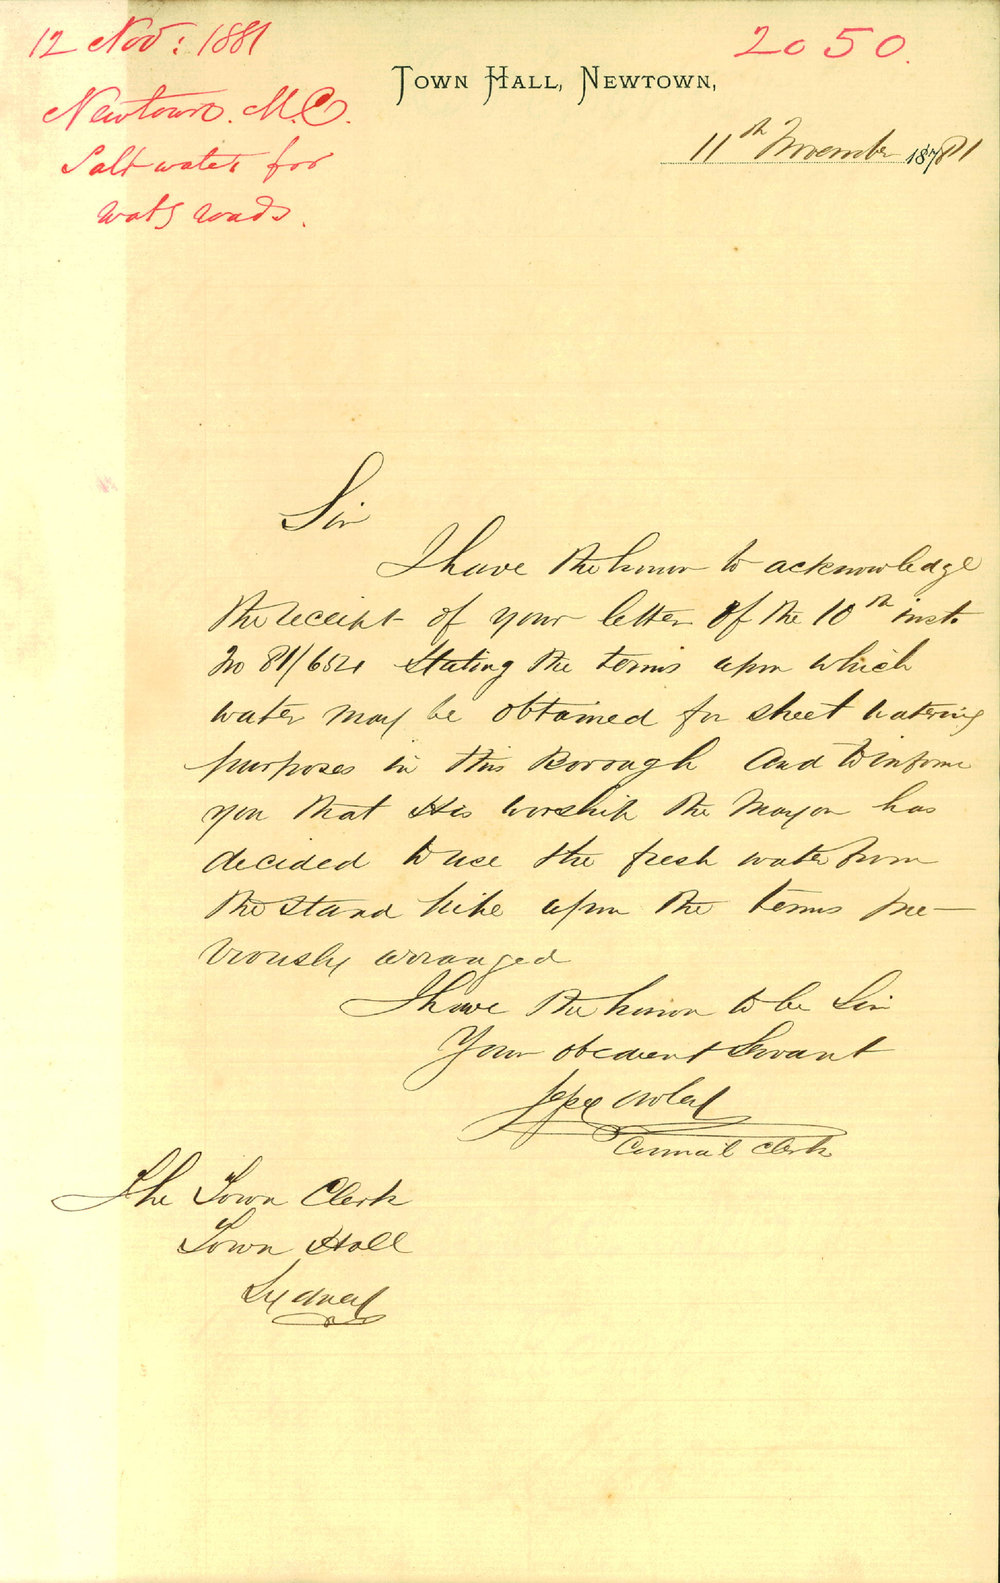 12 Nov: 1881
2050.
Newtown. M.C.
Salt water for
watg roads.
TOWN HALL, NEWTOWN,
11th November 1881
Sir
I have the honor to acknowledge
the receipt of your letter of the 10th inst.
No 81/652 Stating the terms upon which
water may be obtained for street watering
purposes in this Borough And to inform
you that His worship the Mayor has
decided to use the fresh water from
the stand pipe upon the terms pre-
viously arranged
I have the honor to be Sir
Your obedient Servant
Council Clerk
The Town Clerk
Town Hall
Sydney